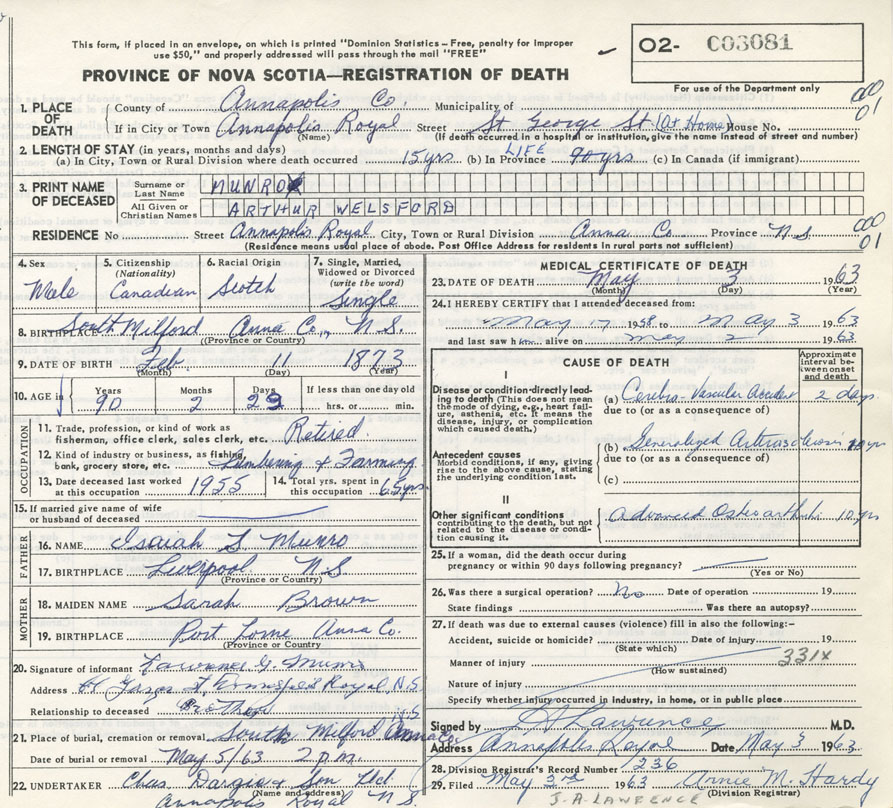 This form, if placed in an envelope, on which is printed "Dominion Statistics – Free, penalty for improper
use $50," and properly addressed will pass through the mail "FREE"
O2- C03081
PROVINCE OF NOVA SCOTIA—REGISTRATION OF DEATH
For use of the Department only
1. PLACE OF DEATH
County of Annapolis Co. Municipality of
000
01
If in City or Town Annapolis Royal Street St George St (At Home) House No.
(Name) (If death occurred in a hospital or institution, give the name instead of street and number)
2. LENGTH OF STAY (in years, months and days) LIFE
(a) In City, Town or Rural Division where death occurred 15 yrs (b) In Province 90 yrs (c) In Canada (if immigrant)
3. PRINT NAME OF DECEASED
Surname or Last Name MUNRO
All Given or Christian Names ARTHUR WELSFORD
RESIDENCE No Street Annapolis Royal City, Town or Rural Division Anna Co Province N.S.
000
01
(Residence means usual place of abode. Post Office Address for residents in rural parts not sufficient)
4. Sex Male
5. Citizenship (Nationality) Canadian
6. Racial Origin Scotch
7. Single, Married, Widowed or Divorced (write the word) Single
8. BIRTHPLACE South Milford Anna Co., N.S.
(Province or Country)
9. DATE OF BIRTH Feb. 11 1873
(Month) (Day) (Year)
10. AGE in Years 90 Months 2 Days If less than one day old hrs. or min.
OCCUPATION
11. Trade, profession, or kind of work as fisherman, office clerk, sales clerk, etc. Retired
12. Kind of industry or business, as fishing, bank, grocery store, etc. Lumbering & Farming
13. Date deceased last worked at this occupation 1955
14. Total yrs. spent in this occupation 65 yrs
15. If married give name of wife or husband of deceased
FATHER
16. NAME Isaiah S. Munro
17. BIRTHPLACE Liverpool N.S.
(Province or Country)
MOTHER
18. MAIDEN NAME Sarah Brown
19. BIRTHPLACE Port Lorne Anna Co.
(Province or Country)
20. Signature of informant Lawrence G. Munro
Address St, Annapolis Royal, N.S.
Relationship to deceased Brother
21. Place of burial, cremation or removal South Milford Anna Co. N.S.
Date of burial or removal May 5/63 2 p.m.
22. UNDERTAKER Chas. Dargie & Son Ltd.
(Name and address)
Annapolis Royal N.S.
MEDICAL CERTIFICATE OF DEATH
23. DATE OF DEATH May 3 1963
(Month) (Day) (Year)
24. I HEREBY CERTIFY that I attended deceased from:
May 17 1958 to May 3 1963
and last saw him alive on May 2 1963
CAUSE OF DEATH
Approximate interval between onset and death
I
Disease or condition directly leading to death (This does not mean the mode of dying, e.g., heart failure, asthenia, etc. It means the disease, injury, or complication which caused death.)
(a) Cerebro-Vascular Accident 2 days
due to (or as a consequence of)
Antecedent causes
Morbid conditions, if any, giving rise to the above cause, stating the underlying condition last.
(b) Generalized Arteriosclerosis yrs
due to (or as a consequence of)
(c)
II
Other significant conditions contributing to the death, but not related to the disease or condition causing it.
Advanced Osteoarthritis 10 yrs
25. If a woman, did the death occur during pregnancy or within 90 days following pregnancy?
(Yes or No)
26. Was there a surgical operation? No Date of operation 19
State findings Was there an autopsy?
27. If death was due to external causes (violence) fill in also the following:-
Accident, suicide or homicide? Date of injury 19
(State which)
Manner of injury 331X
(How sustained)
Nature of injury
Specify whether injury occurred in industry, in home, or in public place
Signed by Lawrence M.D.
Address Annapolis Royal Date May 3 1963
28. Division Registrar's Record Number 236
29. Filed May 3rd 1963 Annie M. Hardy
(Division Registrar)
J.A. LAWRENCE